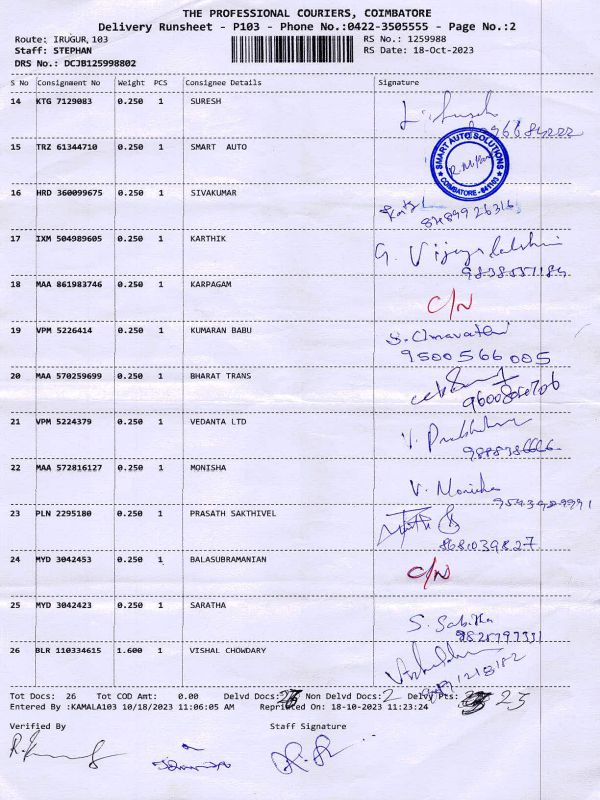 THE PROFESSIONAL COURIERS, COIMBATORE
Delivery Runsheet - P103 - Phone No.:0422-3505555 - Page No.:2
Route: IRUGUR, 103 RS No.: 1259988
Staff: STEPHAN RS Date: 18-Oct-2023
DRS No.: DCJB125998802
S No Consignment No Weight PCS Consignee Details Signature
14 KTG 7129083 0.250 1 SURESH
15 TRZ 61344710 0.250 1 SMART AUTO
SMART AUTO SOLUTIONS
COIMBATORE - 641103
16 HRD 360099675 0.250 1 SIVAKUMAR
17 IXM 504989605 0.250 1 KARTHIK G. Vijayalakshmi
18 MAA 861983746 0.250 1 KARPAGAM C/N
19 VPM 5226414 0.250 1 KUMARAN BABU S. Umavathi
9500566005
20 MAA 570259699 0.250 1 BHARAT TRANS
21 VPM 5224379 0.250 1 VEDANTA LTD
22 MAA 572816127 0.250 1 MONISHA V. Monisha
23 PLN 2295180 0.250 1 PRASATH SAKTHIVEL
8681039827
24 MYD 3042453 0.250 1 BALASUBRAMANIAN C/N
25 MYD 3042423 0.250 1 SARATHA S. Sabitha
26 BLR 110334615 1.600 1 VISHAL CHOWDARY
Tot Docs: 26 Tot COD Amt: 0.00 Delvd Docs: Non Delvd Docs: 2 Delvy Pts: 23
Entered By :KAMALA103 10/18/2023 11:06:05 AM Reprinted On: 18-10-2023 11:23:24
Verified By Staff Signature